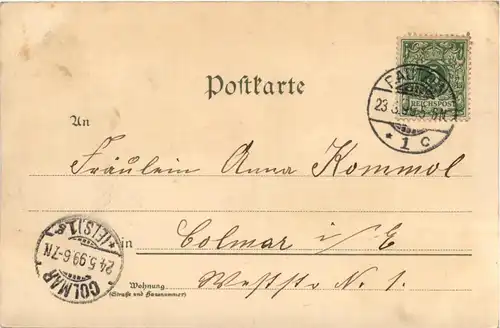 Postkarte
REICHSPOST
23
* 1 c
An
Fräulein Anna Kommol
in Colmar i/E
Weststr. N. 1.
Wohnung
(Straße und Hausnummer)
COLMAR
* (ELS) 1 *
24.5.99.6-7N